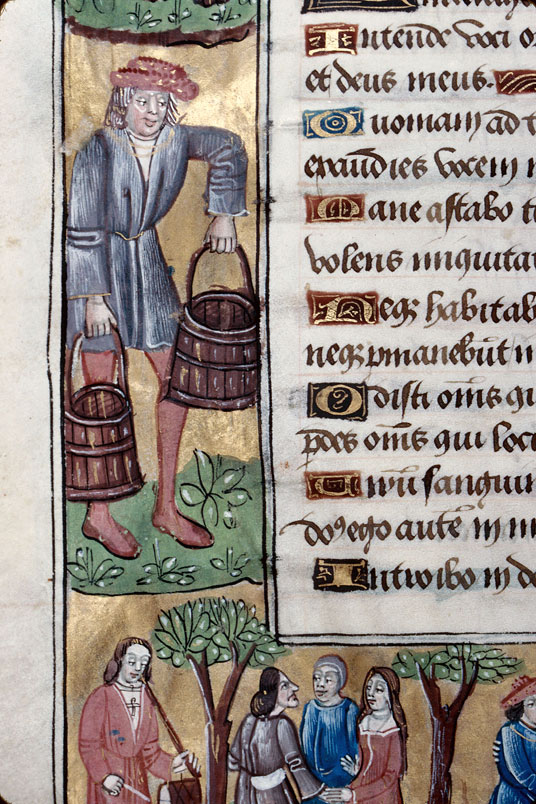 Intende voci o
et deus meus.
Quoniam ad t
exaudies vocem m
Mane astabo t
volens iniquita
Neqꝫ habitab
neqꝫ ꝑmanebūt in
Odisti om̄s qu
ꝑdes om̄s qui loc
Uirū sanguin
doꝰ ego autē in m
Introibo in do